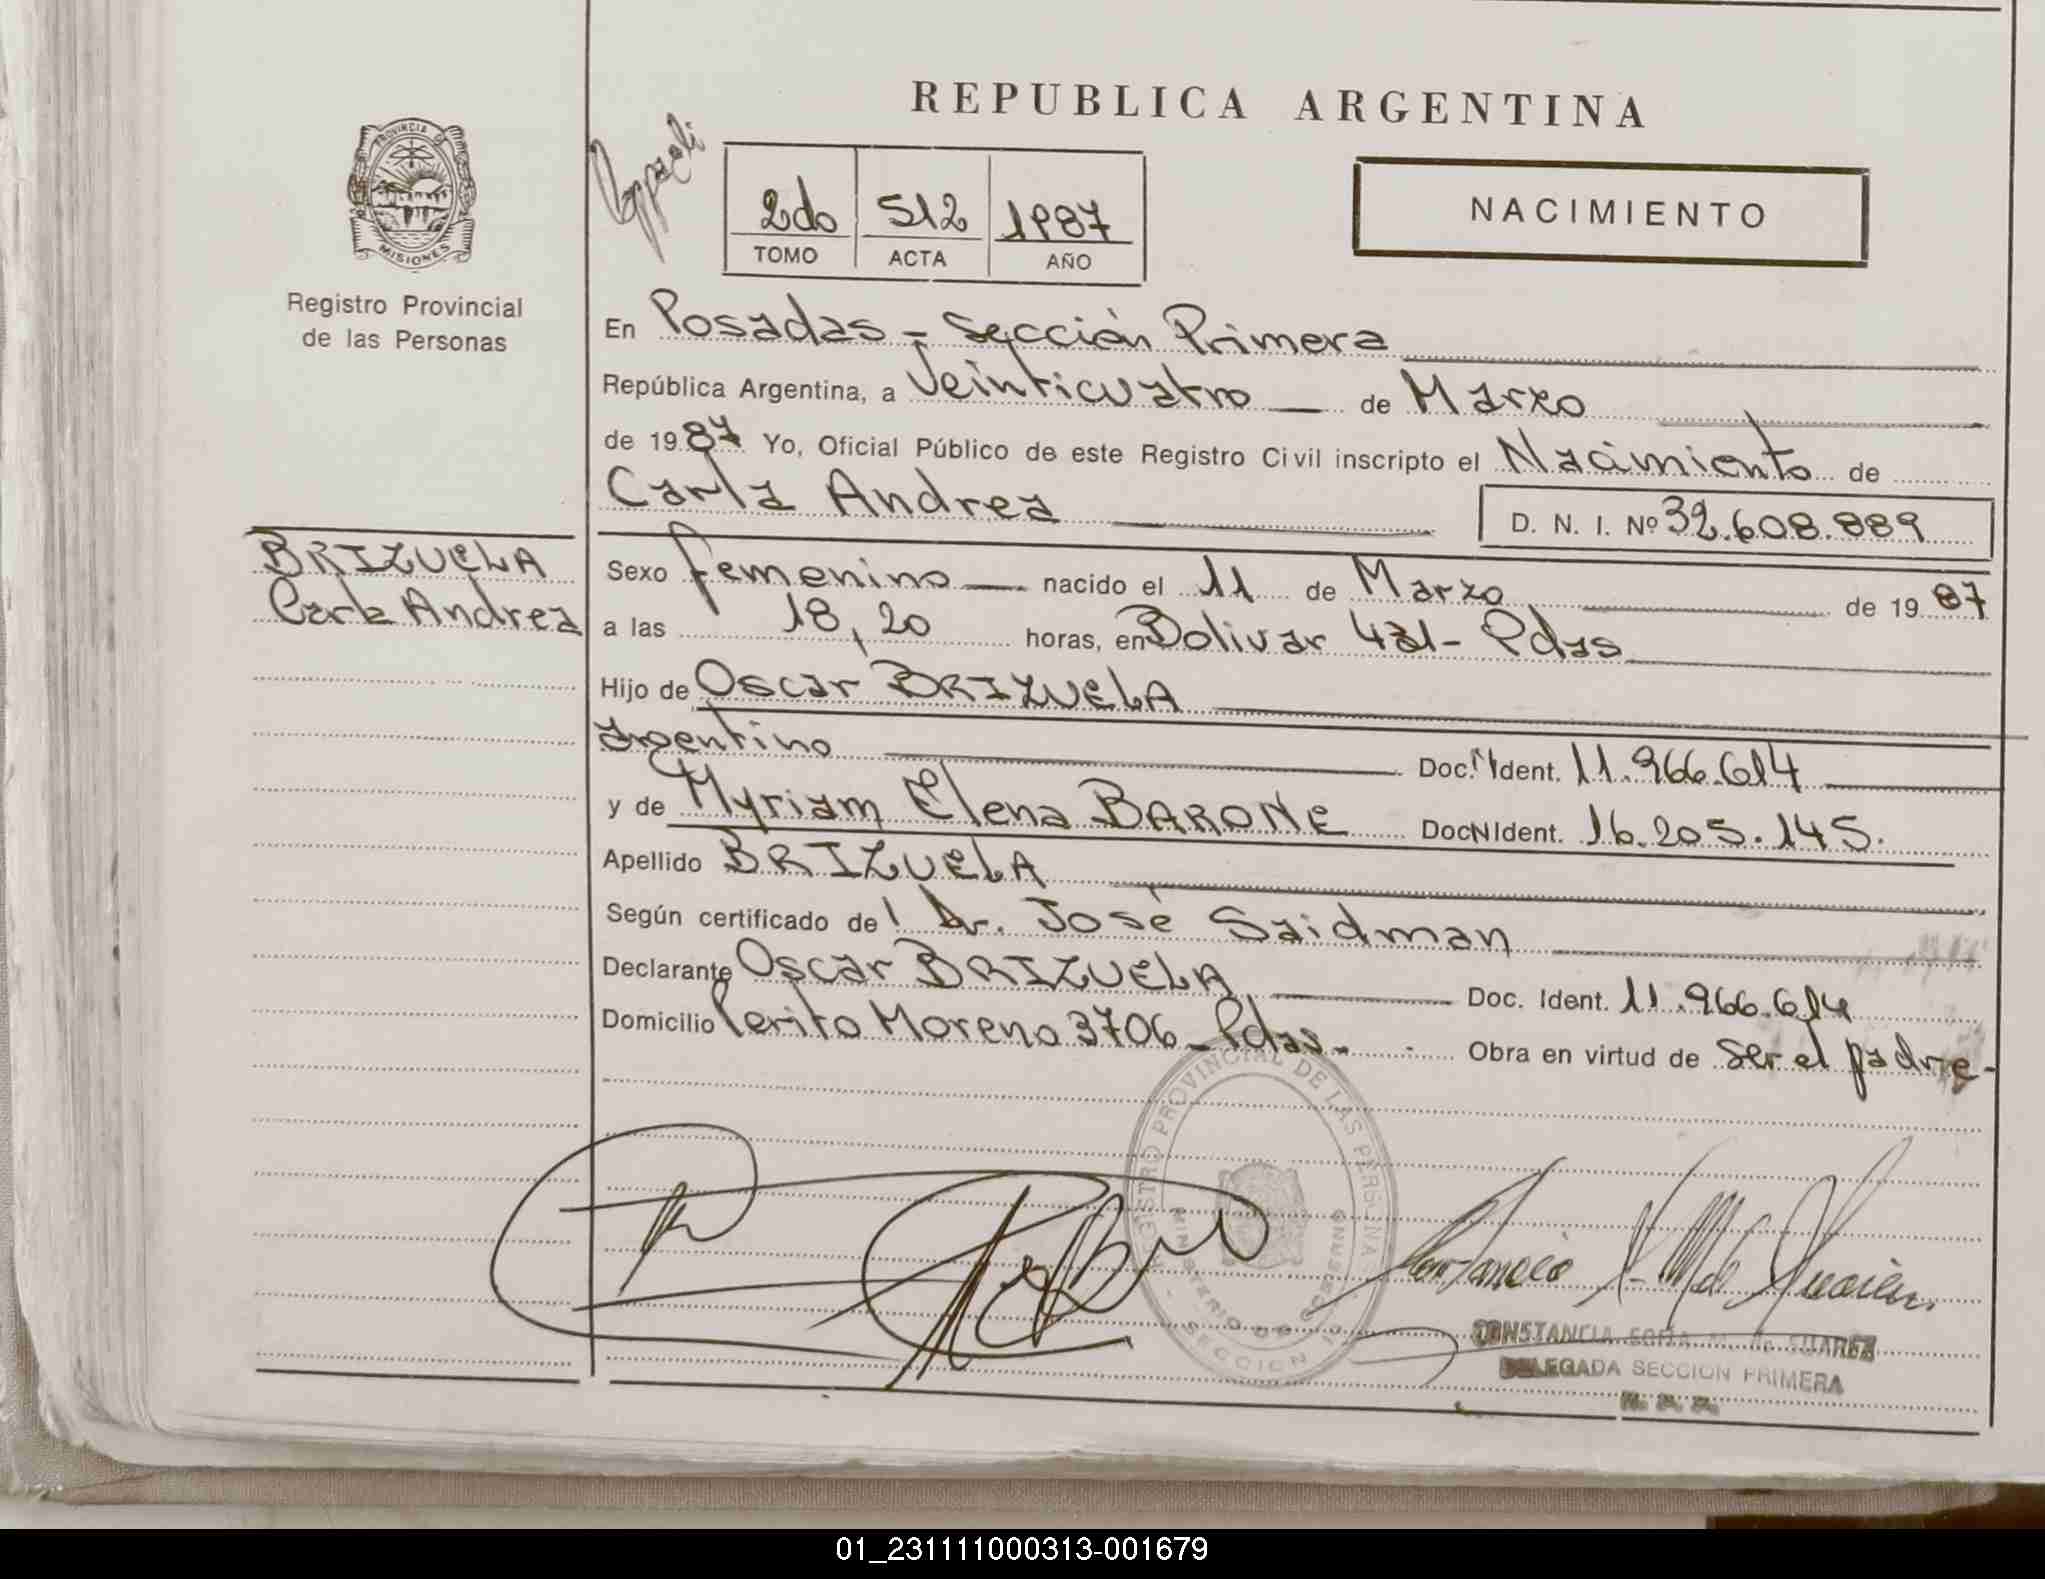 REPUBLICA ARGENTINA
PROVINCIA DE
MISIONES
Registro Provincial
de las Personas
2do 512 1987
TOMO ACTA AÑO
NACIMIENTO
En Posadas - Sección Primera
República Argentina, a Veinticuatro de Marzo
de 1987 Yo, Oficial Público de este Registro Civil inscripto el Nacimiento de
Carla Andrea
D. N. I. Nº 32.608.889
BRIZUELA
Carla Andrea
Sexo femenino nacido el 11 de Marzo de 1987
a las 18,20 horas, en Bolivar - Pdas
Hijo de Oscar BRIZUELA
argentino Doc. Ident. 11.966.614
y de Myriam Elena BARONE Doc N Ident. 16.205.145.
Apellido BRIZUELA
Según certificado de Dr. José Saidman
Declarante Oscar BRIZUELA Doc. Ident. 11.966.614
Domicilio Perito Moreno 3706 - Pdas - Obra en virtud de ser el padre -
REGISTRO PROVINCIAL DE LAS PERSONAS
MINISTERIO DE GOBIERNO
SECCION
CONSTANCIA SOFIA M. de SUAREZ
DELEGADA SECCION PRIMERA
01_231111000313-001679